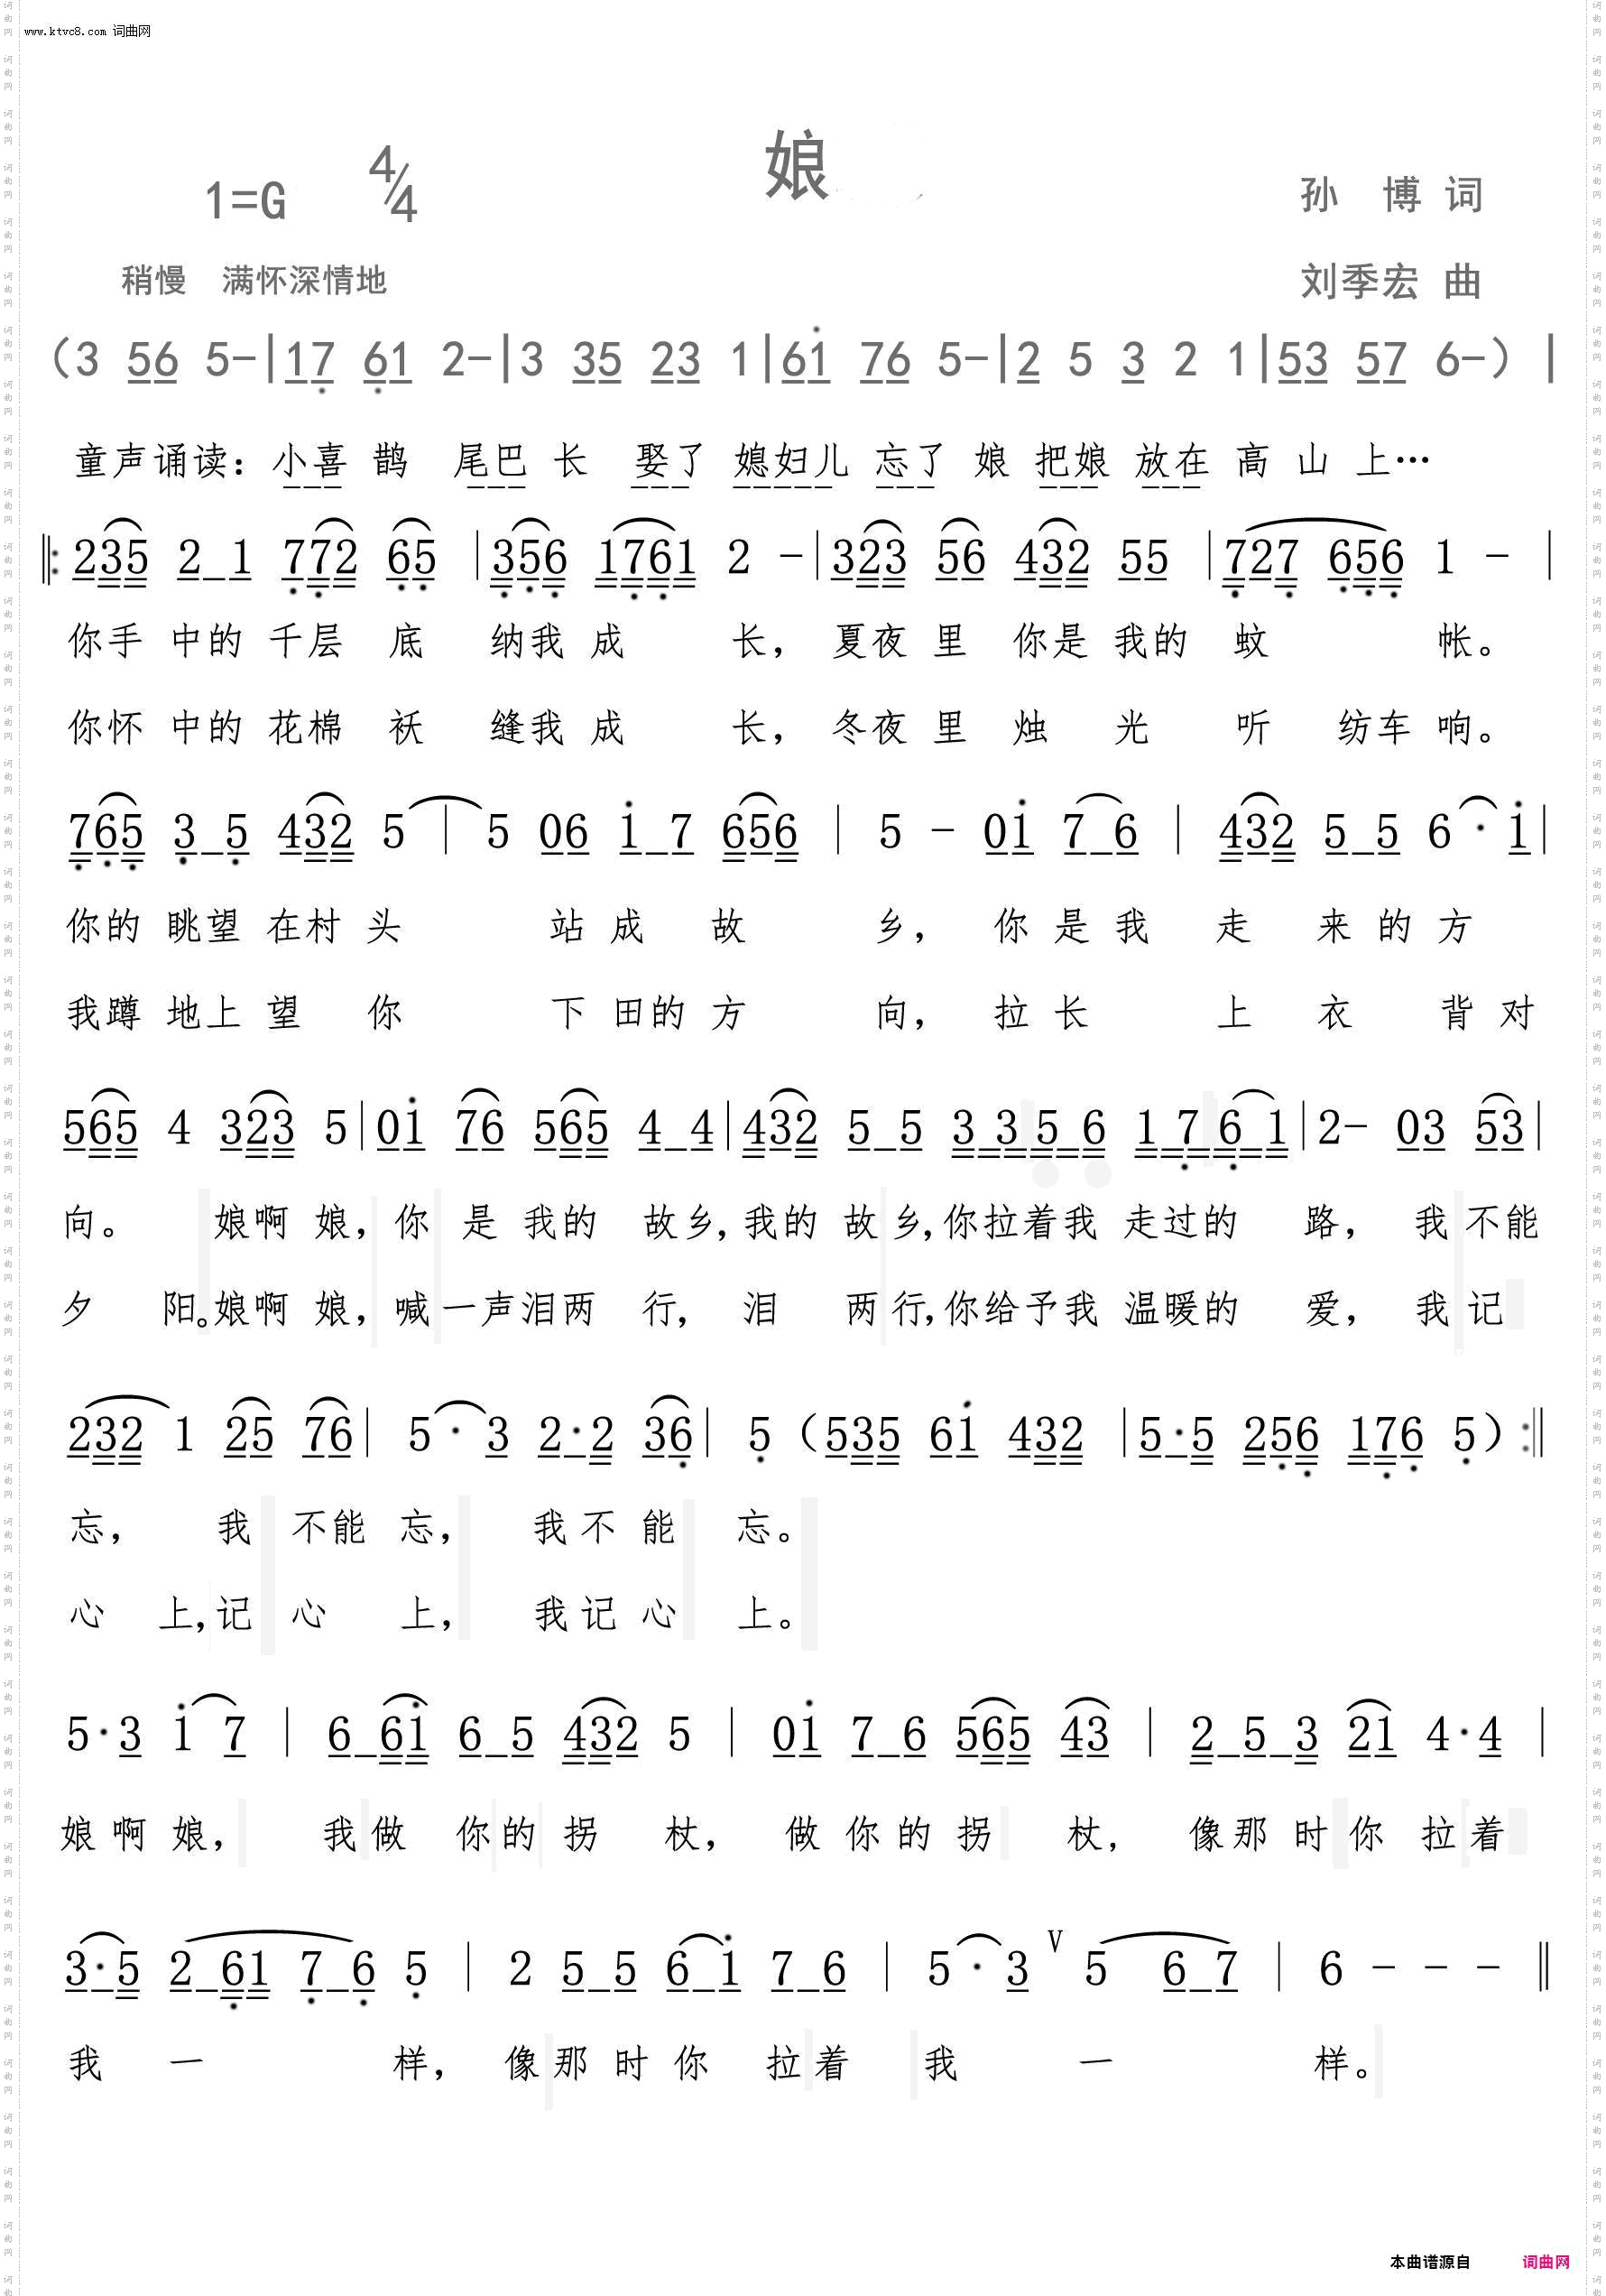 www.ktvc8.com 词曲网
娘
1=G 4/4
孙 博 词
稍慢 满怀深情地
刘季宏 曲
(3 56 5-|17 61 2-|3 35 23 1|61 76 5-|2 5 3 2 1|53 57 6-)|
童声诵读：小喜 鹊 尾巴 长 娶了 媳妇儿 忘了 娘 把娘 放在 高 山 上…
‖:235 2 1 772 65 |356 1761 2 -|323 56 432 55 |727 656 1 - |
你手 中的 千层 底 纳我 成 长， 夏夜 里 你是 我的 蚊 帐。
你怀 中的 花棉 袄 缝我 成 长， 冬夜 里 烛 光 听 纺车 响。
765 3 5 432 5 | 5 06 i 7 656 | 5 - 0i 7 6 | 432 5 5 6 · i|
你的 眺望 在村 头 站 成 故 乡， 你 是 我 走 来 的 方
我蹲 地上 望 你 下 田的 方 向， 拉 长 上 衣 背 对
565 4 323 5|0i 76 565 4 4|432 5 5 3 3 5 6 1 7 6 1|2- 03 53|
向。 娘啊 娘，你 是 我的 故乡，我的 故乡，你拉着我 走过的 路， 我 不能
夕 阳。娘啊 娘，喊一声泪两 行， 泪 两行，你给予我 温暖的 爱， 我 记
232 1 25 76| 5 · 3 2·2 36| 5 (535 6i 432 |5·5 256 176 5):‖
忘， 我 不能 忘， 我 不 能 忘。
心 上，记 心 上， 我 记 心 上。
5·3 i 7 | 6 6i 6 5 432 5 | 0i 7 6 565 43 | 2 5 3 21 4·4 |
娘 啊 娘， 我 做 你 的 拐 杖， 做 你 的 拐 杖， 像 那 时 你 拉 着
3·5 2 61 7 6 5 | 2 5 5 6 i 7 6 | 5 · 3 V 5 6 7 | 6 - - - ‖
我 一 样， 像 那 时 你 拉 着 我 一 样。
本曲谱源自 词曲网